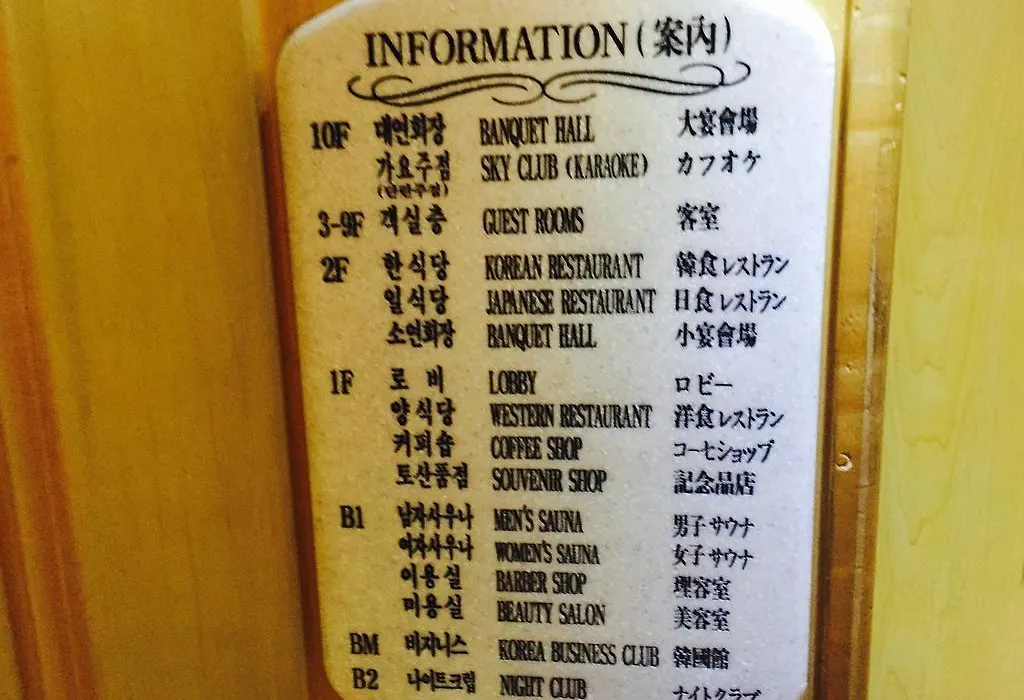 INFORMATION (案內)
10F 대연회장 BANQUET HALL 大宴會場
가요주점 SKY CLUB (KARAOKE) カフオケ
(단란주점)
3-9F 객실층 GUEST ROOMS 客室
2F 한식당 KOREAN RESTAURANT 韓食レストラン
일식당 JAPANESE RESTAURANT 日食レストラン
소연회장 BANQUET HALL 小宴會場
1F 로비 LOBBY ロビー
양식당 WESTERN RESTAURANT 洋食レストラン
커피숍 COFFEE SHOP コーセショップ
토산품점 SOUVENIR SHOP 記念品店
B1 남자사우나 MEN'S SAUNA 男子サウナ
여자사우나 WOMEN'S SAUNA 女子サウナ
이용실 BARBER SHOP 理容室
미용실 BEAUTY SALON 美容室
BM 비지니스 KOREA BUSINESS CLUB 韓國館
B2 나이트크럽 NIGHT CLUB ナイトクラブ